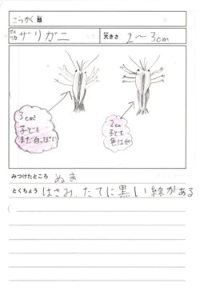 こっかく類
ザリガニ 大きさ 2〜3cm
3cm
子ども
まだ白っぽい
2cm
子ども
色は白
みつけたところ ぬま
とくちょう はさみ、たてに黒い線がある